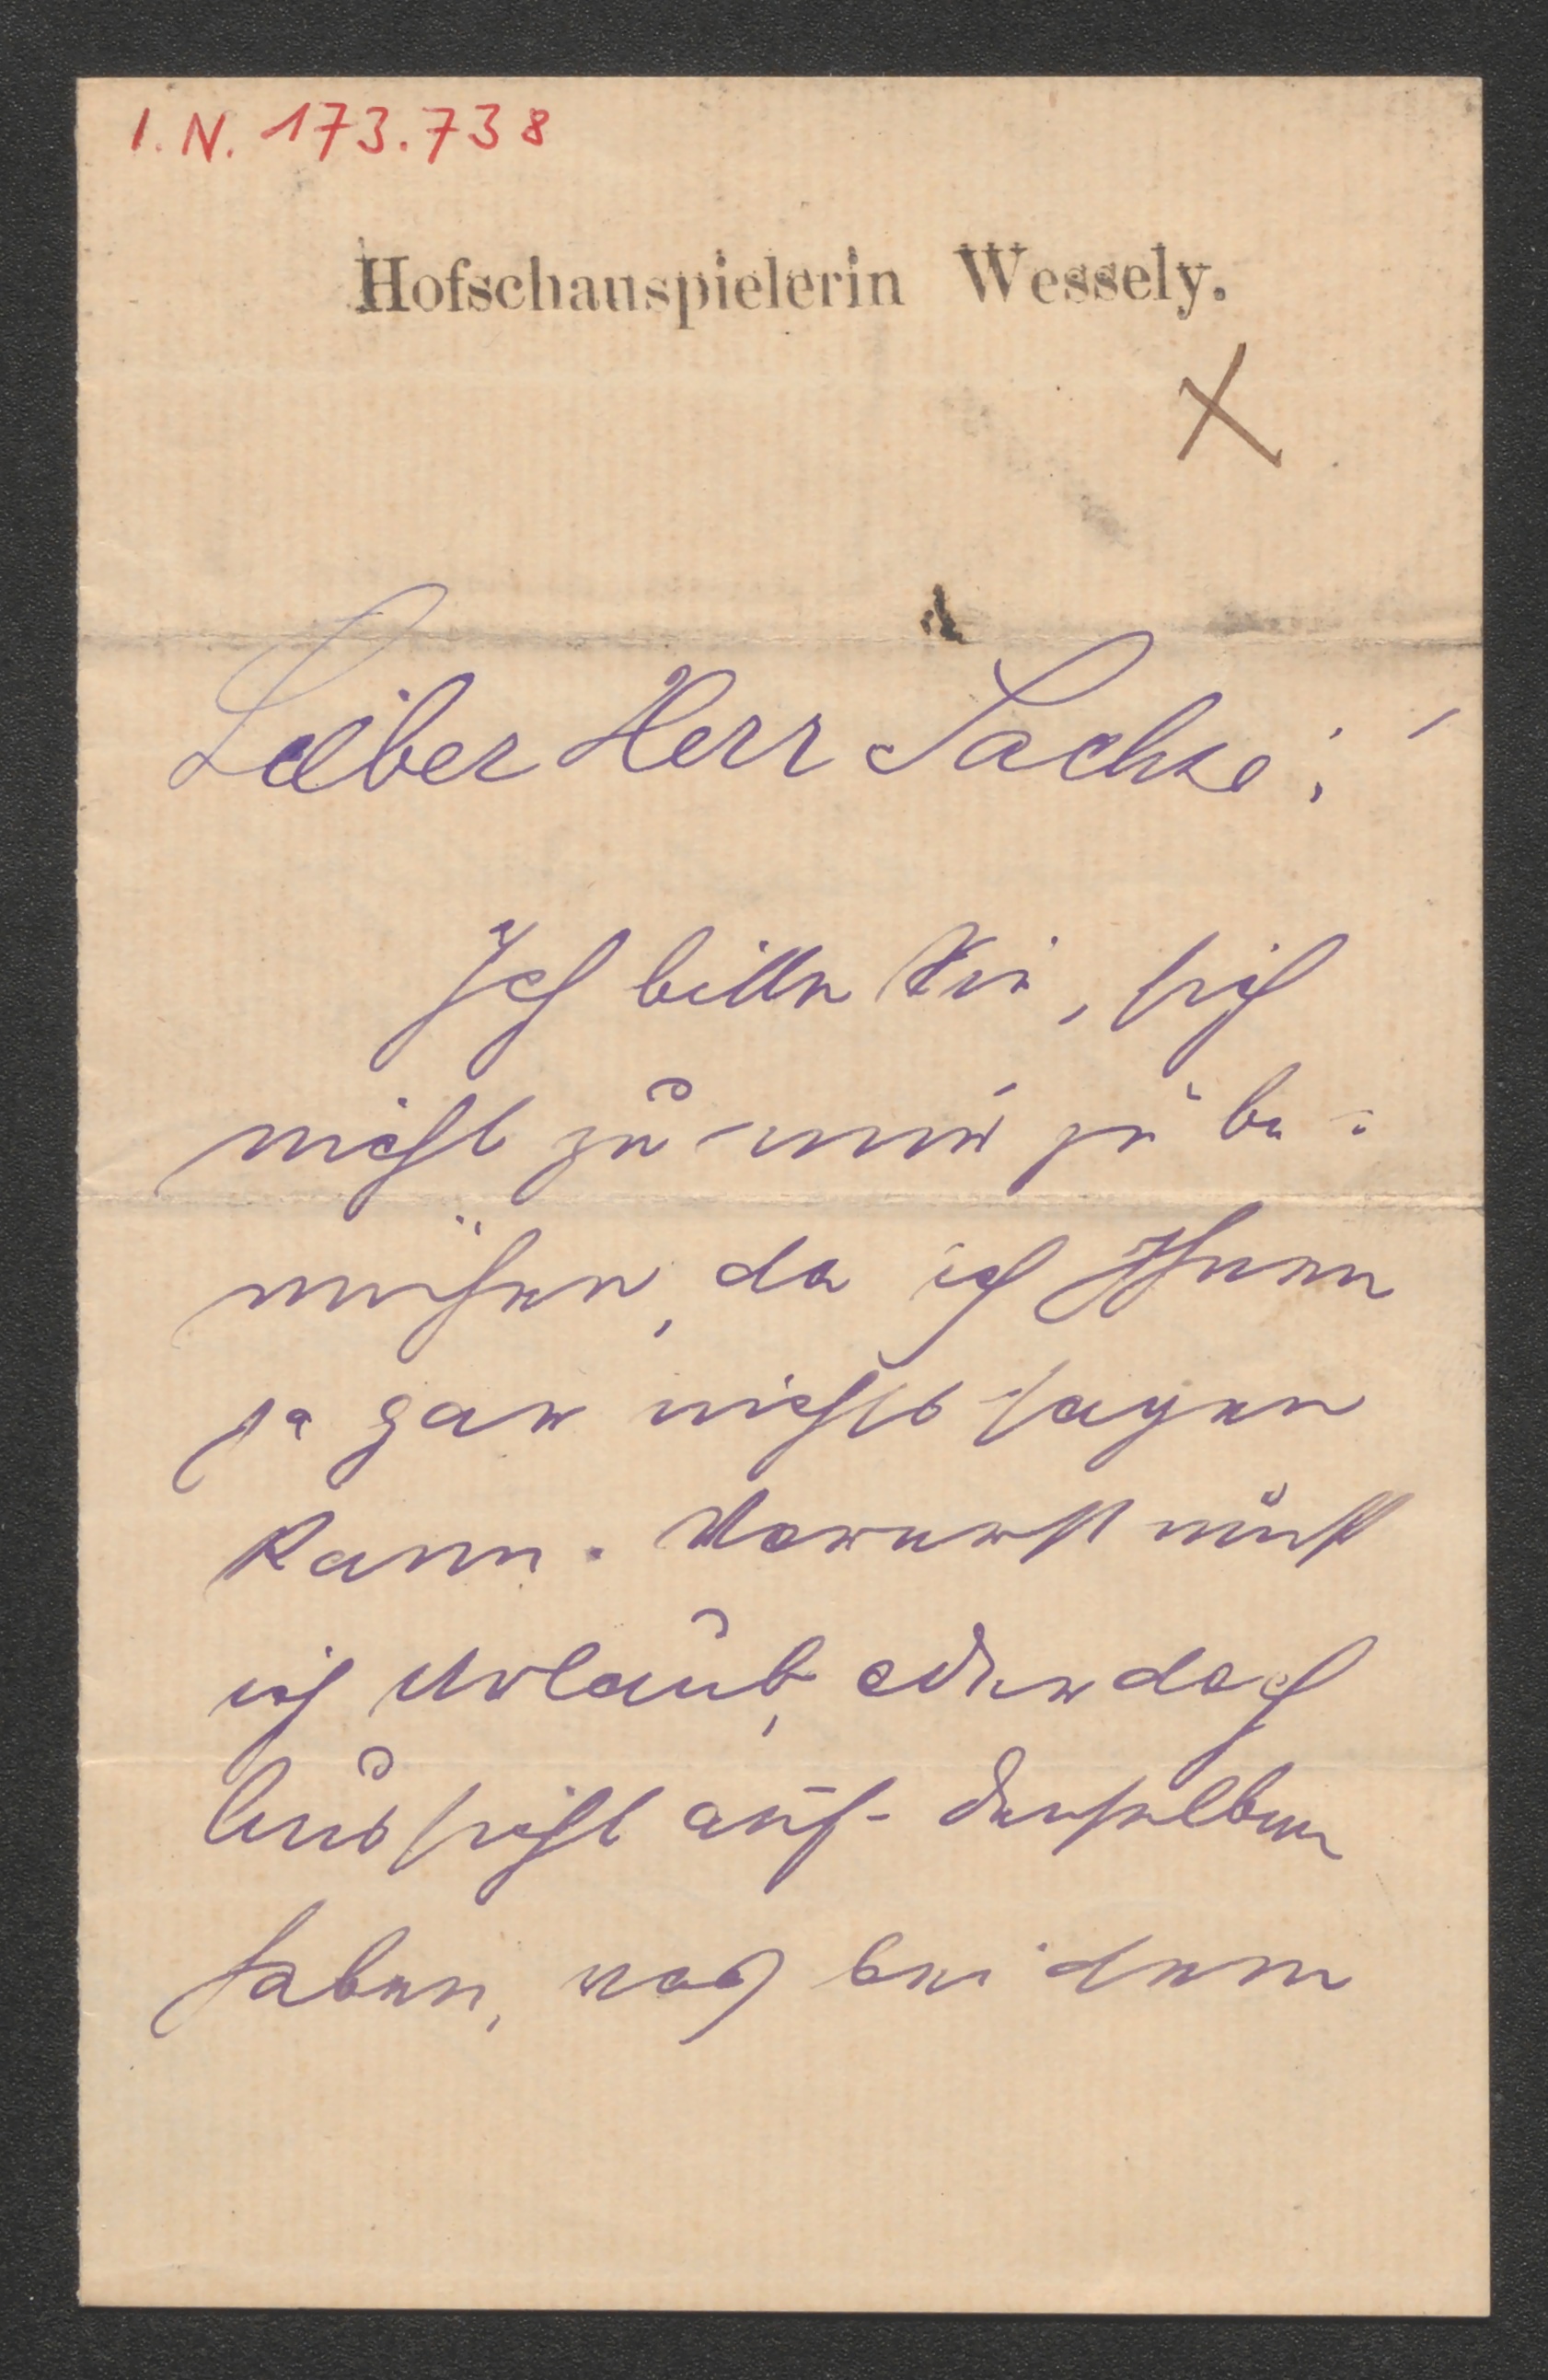 I.N. 173.738
Hofschauspielerin Wessely.
X
Lieber Herr Sachse!
Ich bitte Sie, sich
nicht zu mir zu be-
mühen, da ich Ihnen
ja gar nichts sagen
kann. Vorerst muß
ich Urlaub, oder doch
Aussicht auf denselben
haben, was bei dem